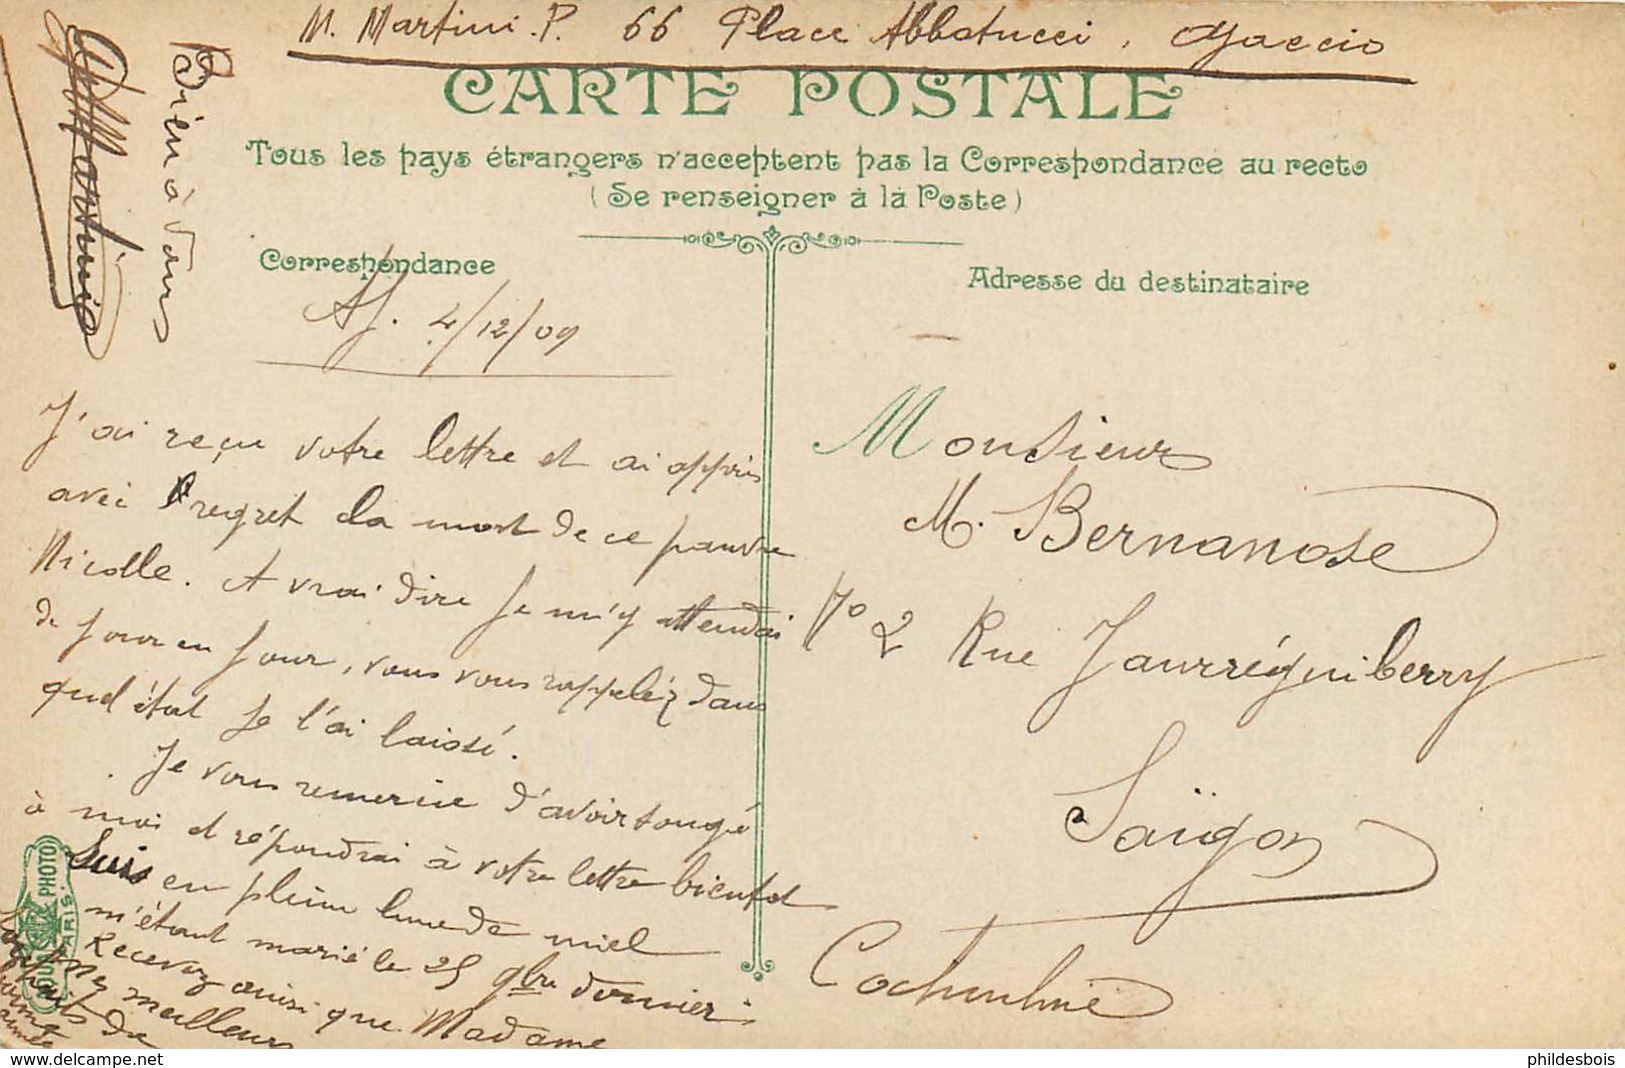 M. Martini. P. 66 Place Abbatucci, Ajaccio
CARTE POSTALE
Tous les pays étrangers n'acceptent pas la Correspondance au recto
(Se renseigner à la Poste)
Correspondance
Adresse du destinataire
Aj. 4/12/09
J'ai reçu votre lettre et ai appris
avec regret la mort de ce pauvre
Nicolle. A vrai dire je m'y attendai
de jour en jour, vous vous rappelez dans
quel état je l'ai laissé.
Je vous remercie d'avoir songé
à moi et répondrai à votre lettre bientot
Suis en pleine lune de miel
m'étant marié le 25 9bre dernier
Recevez ainsi que Madame
mes meilleurs
souhaits de
bonne
année
Bien à vous
Martini
Monsieur
M. Bernanose
No 2 Rue Jaurréguiberry
Saïgon
Cochinchine
PHOTO
PARIS.
phildesbois
www.delcampe.net